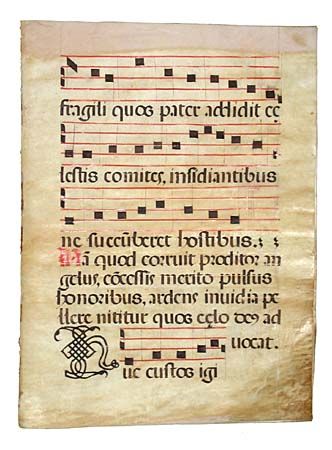 fragili quos pater addidit ce
lestis comites, insidiantibus
ne succūberet hostibus.
Nā quod corruit proditor an
gelus, cōcessis merito pulsus
honoribus, ardens inuidia pe
llere nititur quos cęlo deꝰ ad
uocat.
Huc custos igi